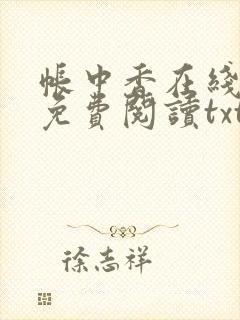 帳中香在綫
免費閱讀txt
徐志祥